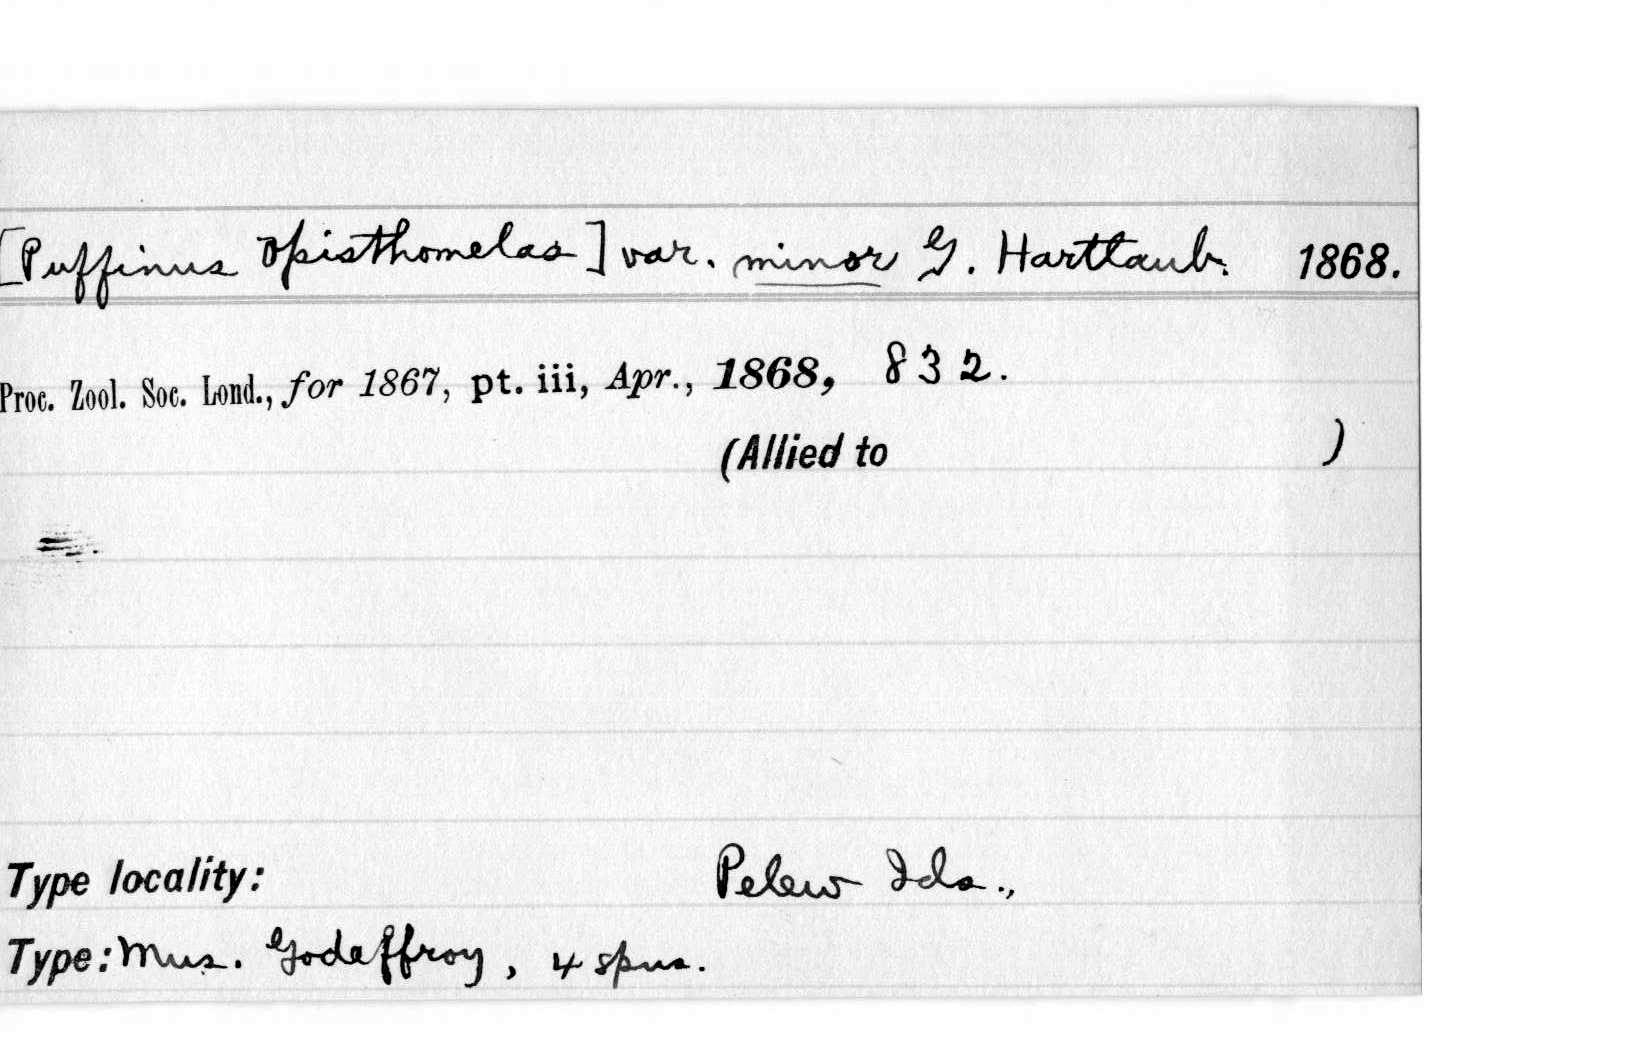 [Puffinus opisthomelas] var. minor G. Hartlaub. 1868.
Proc. Zool. Soc. Lond., for 1867, pt. iii, Apr., 1868, 832.
(Allied to )
Type locality: Pelew Ids.,
Type: Mus. Godeffroy, 4 spns.